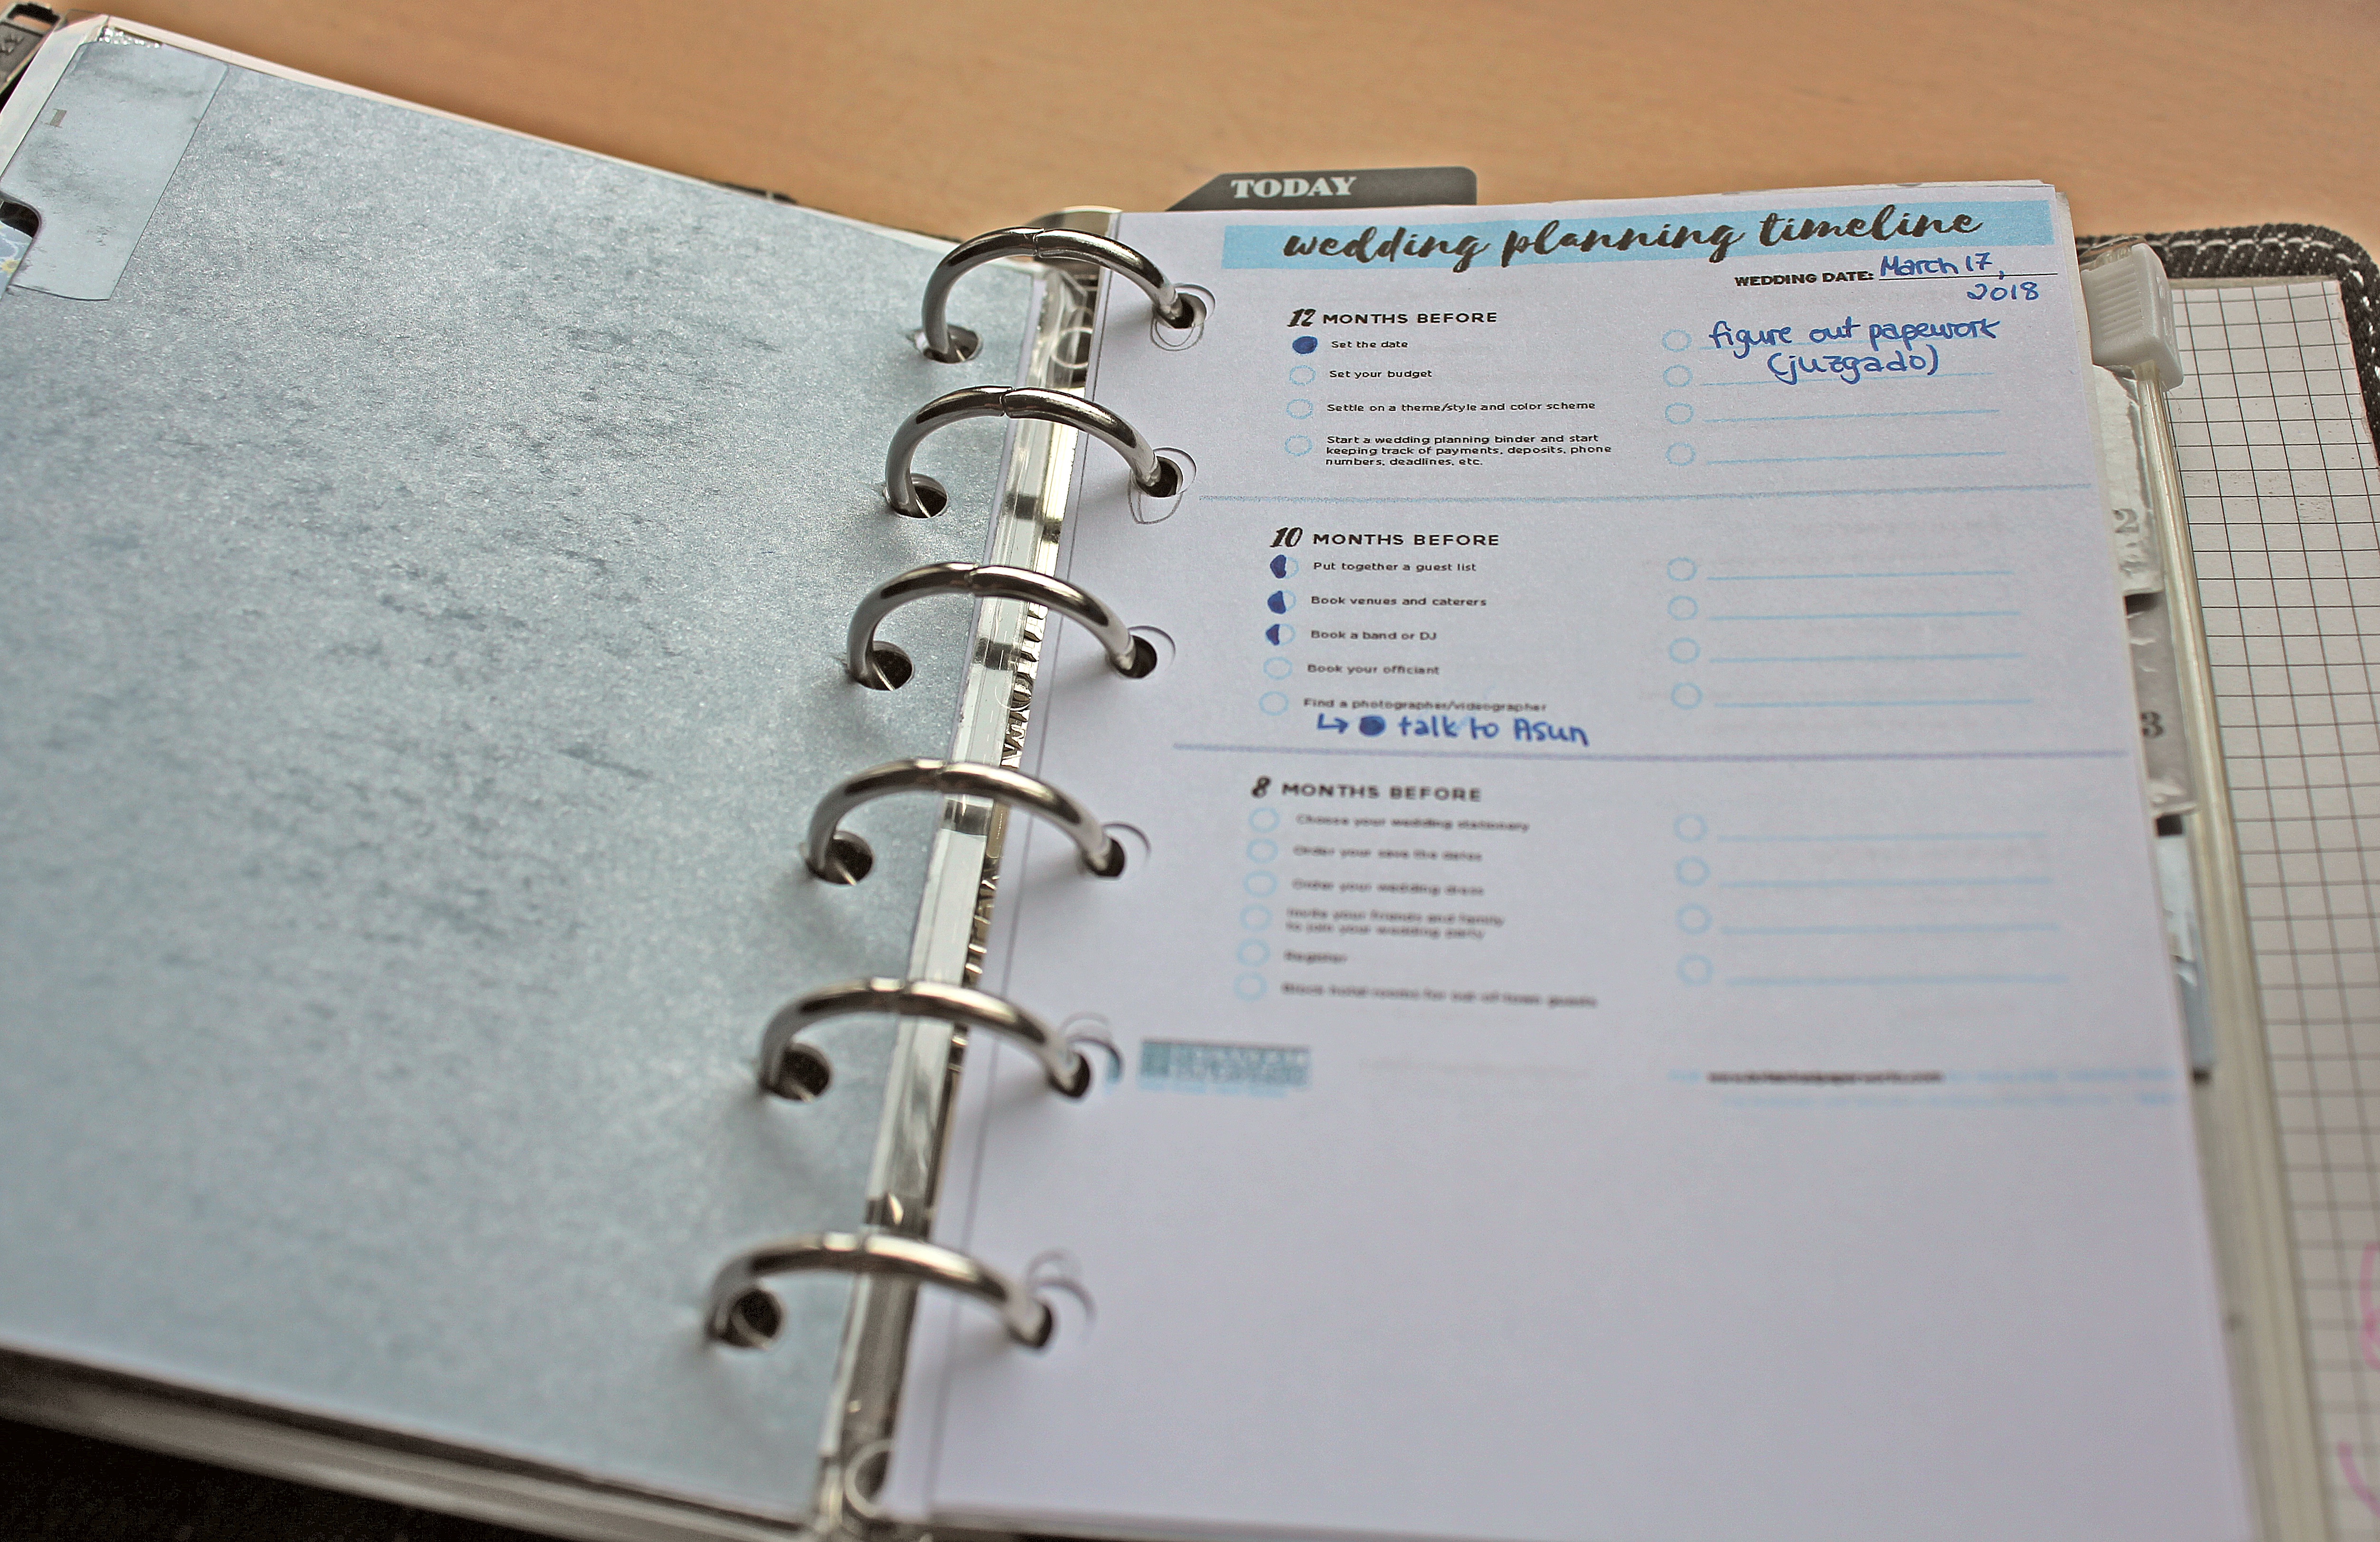 TODAY
wedding planning timeline
WEDDING DATE: March 17,
2018
12 MONTHS BEFORE
Set the date
Set your budget
Settle on a theme/style and color scheme
Start a wedding planning binder and start
keeping track of payments, deposits, phone
numbers, deadlines, etc.
figure out papework
(juzgado)
10 MONTHS BEFORE
Put together a guest list
Book venues and caterers
Book a band or DJ
Book your officiant
Find a photographer/videographer
↳ talk to Asun
8 MONTHS BEFORE
Choose your wedding stationary
Order your save the dates
Order your wedding dress
Invite your friends and family
to join your wedding party
Register
Block hotel rooms for out of town guests
2
3